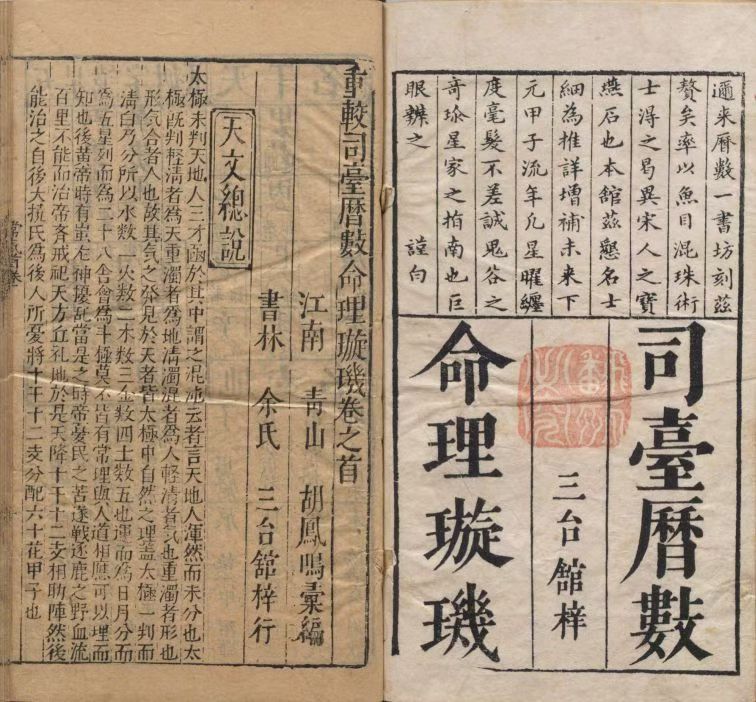 邇来曆數一書坊刻茲
贅矣率以魚目混珠術
士淂之曷異宋人之寶
燕石也本舘茲懇名士
細為推詳增補未来下
元甲子流年凢星曜纏
度毫髮不差誠鬼谷之
竒珎星家之指南也巨
眼辨之　謹白
司臺曆數
三台舘梓
命理璇璣
重較司臺曆數命理璇璣卷之首
江南　青山　胡鳳鳴彙編
書林　余氏　三台舘梓行
天文總說
太極未判天地人三才凾於其中謂之混沌云者言天地人渾然而未分也太
極既判輕清者為天重濁者為地清濁混者為人輕清者氣也重濁者形也
形氣合者人也故其气之發見於天者皆太極中自然之理蓋太極一判而
清白乃分所以水數一火數二木數三金數四土數五也運而為日月分而
為五星列而為二十八舍會為斗極莫不皆有常理與人道相應可以理而
知也後黄帝時有蚩尤神擾亂當是之時帝憂民之苦遂戰逐鹿之野血流
百里不能而治帝齐戒祀天方丘礼地於是天降十干十二支相助陣然後
能治之自後大撓氏為後人所憂將十干十二支分配六十花甲子也